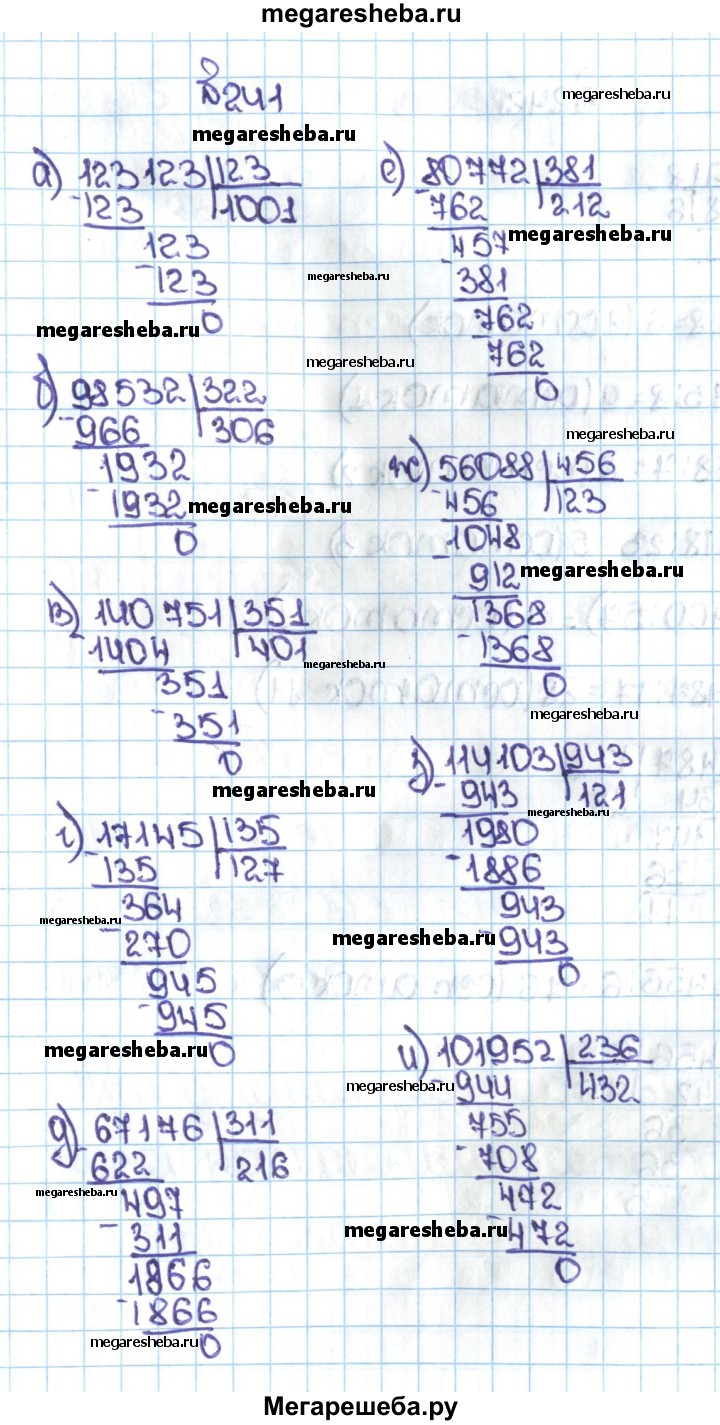 megaresheba.ru
№241
megaresheba.ru
megaresheba.ru
а) 123123 | 123
- 123 | 1001
123
- 123
0
megaresheba.ru
megaresheba.ru
б) 98532 | 322
- 966 | 306
1932
- 1932
0
megaresheba.ru
в) 140751 | 351
- 1404 | 401
351
- 351
0
megaresheba.ru
megaresheba.ru
г) 17145 | 135
- 135 | 127
364
- 270
945
- 945
0
megaresheba.ru
megaresheba.ru
д) 67176 | 311
- 622 | 216
497
- 311
1866
- 1866
0
megaresheba.ru
megaresheba.ru
е) 80772 | 381
- 762 | 212
457
- 381
762
- 762
0
megaresheba.ru
megaresheba.ru
megaresheba.ru
ж) 56088 | 456
- 456 | 123
1048
- 912
1368
- 1368
0
megaresheba.ru
megaresheba.ru
з) 114103 | 943
- 943 | 121
1980
- 1886
943
- 943
0
megaresheba.ru
megaresheba.ru
и) 101952 | 236
- 944 | 432
755
- 708
472
- 472
0
megaresheba.ru
megaresheba.ru
Мегарешеба.ру